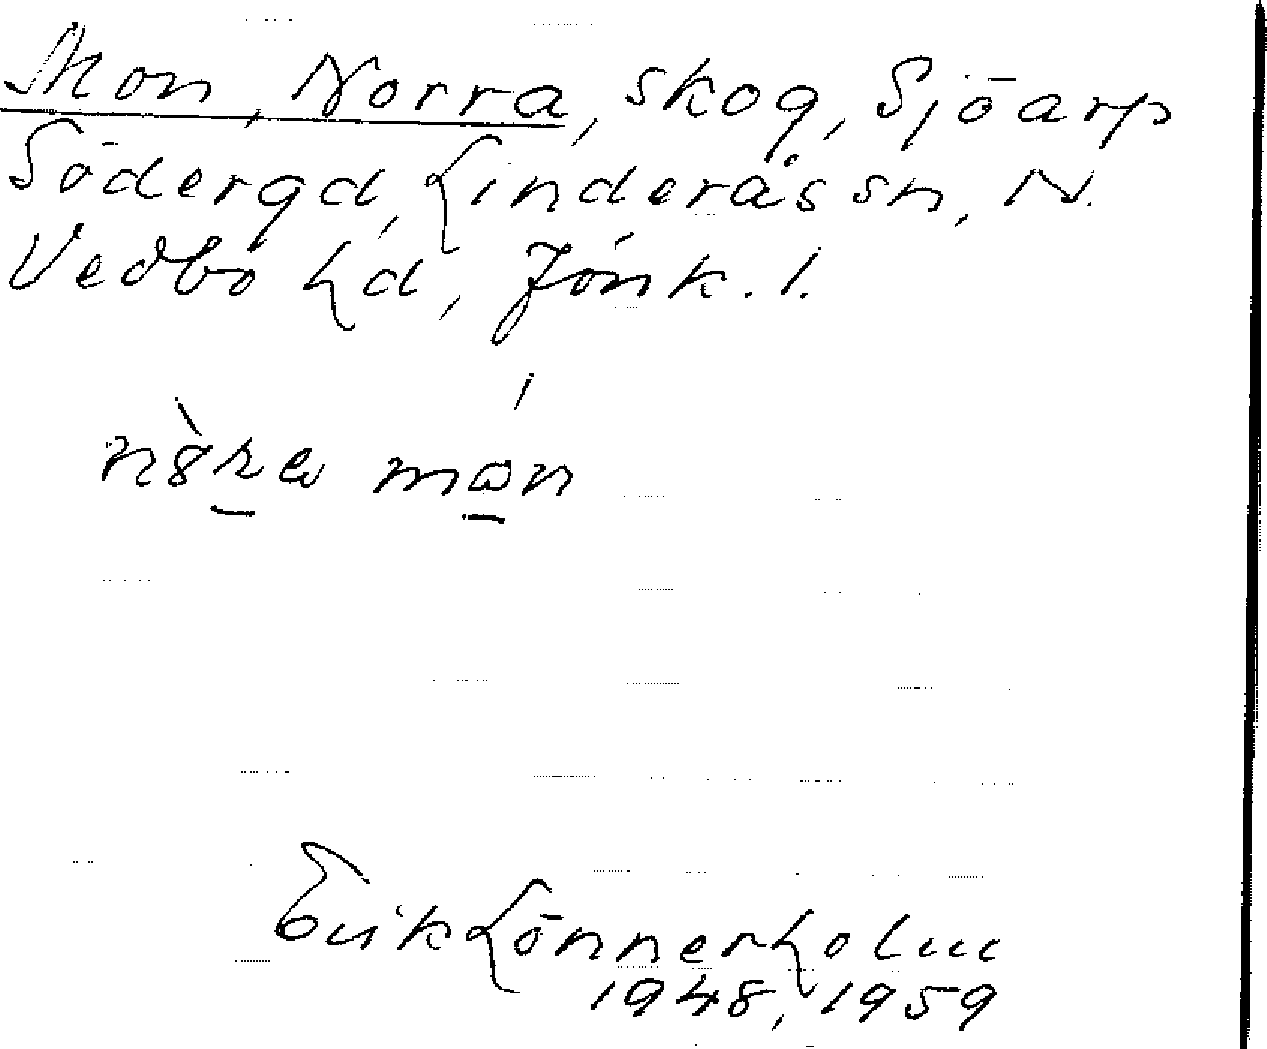 Mon, Norra, skog, Sjöarp
Södergd, Linderås sn, N.
Vedbo hd, Jönk. l.
nò̀ra món
Erik Lönnerholm
1948, 1959